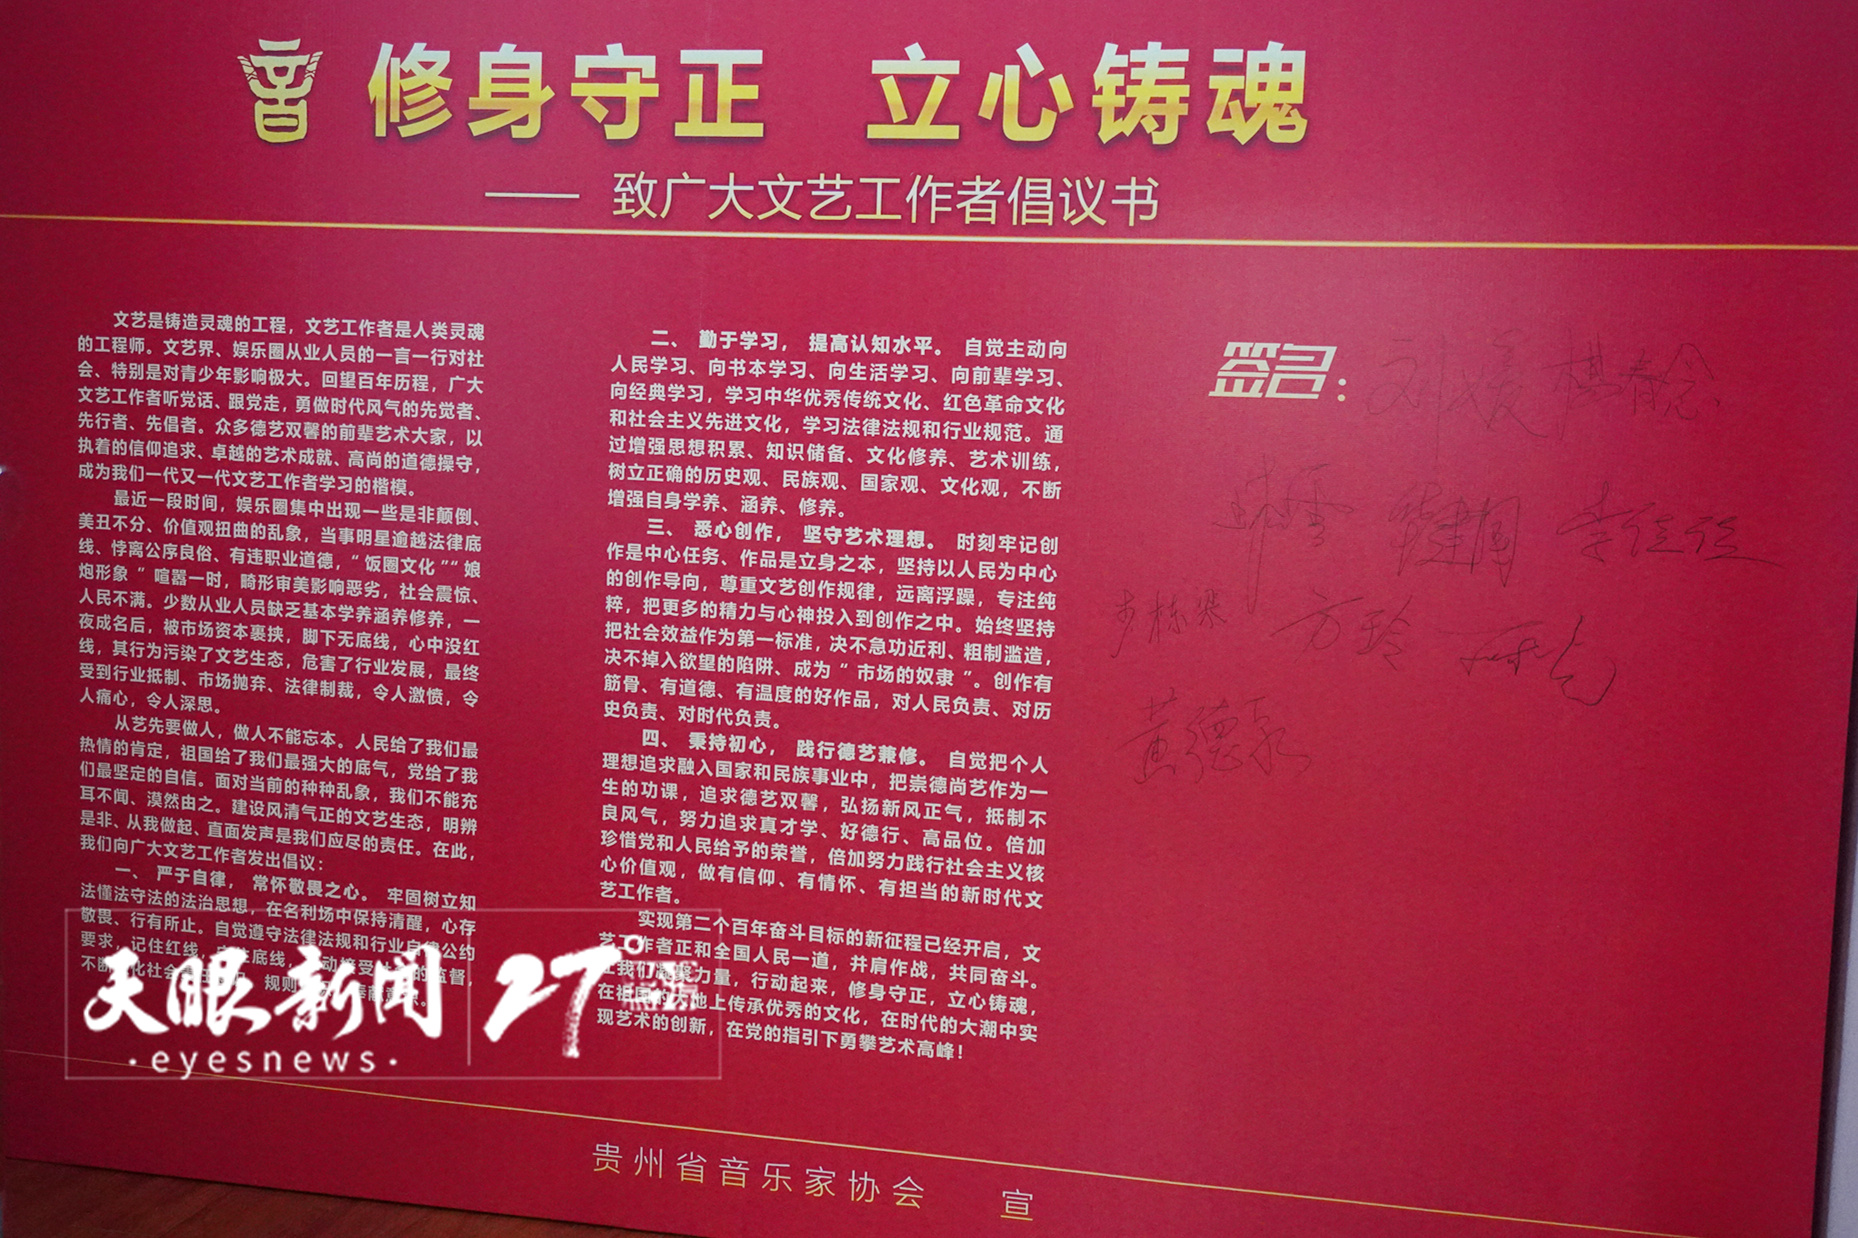 修身守正 立心铸魂
—— 致广大文艺工作者倡议书
文艺是铸造灵魂的工程，文艺工作者是人类灵魂
的工程师。文艺界、娱乐圈从业人员的一言一行对社
会、特别是对青少年影响极大。回望百年历程，广大
文艺工作者听党话、跟党走，勇做时代风气的先觉者、
先行者、先倡者。众多德艺双馨的前辈艺术大家，以
执着的信仰追求、卓越的艺术成就、高尚的道德操守，
成为我们一代又一代文艺工作者学习的楷模。
最近一段时间，娱乐圈集中出现一些是非颠倒、
美丑不分、价值观扭曲的乱象，当事明星逾越法律底
线、悖离公序良俗、有违职业道德，“饭圈文化”“娘
炮形象 ”喧嚣一时，畸形审美影响恶劣，社会震惊、
人民不满。少数从业人员缺乏基本学养涵养修养，一
夜成名后，被市场资本裹挟，脚下无底线，心中没红
线，其行为污染了文艺生态，危害了行业发展，最终
受到行业抵制、市场抛弃、法律制裁，令人激愤，令
人痛心，令人深思。
从艺先要做人，做人不能忘本。人民给了我们最
热情的肯定，祖国给了我们最强大的底气，党给了我
们最坚定的自信。面对当前的种种乱象，我们不能充
耳不闻、漠然由之。建设风清气正的文艺生态，明辨
是非、从我做起、直面发声是我们应尽的责任。在此，
我们向广大文艺工作者发出倡议：
一、 严于自律， 常怀敬畏之心。 牢固树立知
法懂法守法的法治思想，在名利场中保持清醒，心存
敬畏、行有所止。自觉遵守法律法规和行业自律公约
要求，记住红线，底线，动接受的监督，
不断化社会规则奉献意识。
二、 勤于学习， 提高认知水平。 自觉主动向
人民学习、向书本学习、向生活学习、向前辈学习、
向经典学习，学习中华优秀传统文化、红色革命文化
和社会主义先进文化，学习法律法规和行业规范。通
过增强思想积累、知识储备、文化修养、艺术训练，
树立正确的历史观、民族观、国家观、文化观，不断
增强自身学养、涵养、修养。
三、 悉心创作， 坚守艺术理想。 时刻牢记创
作是中心任务、作品是立身之本，坚持以人民为中心
的创作导向，尊重文艺创作规律，远离浮躁，专注纯
粹，把更多的精力与心神投入到创作之中。始终坚持
把社会效益作为第一标准，决不急功近利、粗制滥造，
决不掉入欲望的陷阱、成为 “ 市场的奴隶 ”。创作有
筋骨、有道德、有温度的好作品，对人民负责、对历
史负责、对时代负责。
四、 秉持初心， 践行德艺兼修。 自觉把个人
理想追求融入国家和民族事业中，把崇德尚艺作为一
生的功课，追求德艺双馨，弘扬新风正气，抵制不
良风气，努力追求真才学、好德行、高品位。倍加
珍惜党和人民给予的荣誉，倍加努力践行社会主义核
心价值观，做有信仰、有情怀、有担当的新时代文
艺工作者。
实现第二个百年奋斗目标的新征程已经开启，文
艺工作者正和全国人民一道，并肩作战，共同奋斗。
让我们凝聚力量，行动起来，修身守正，立心铸魂，
在祖国的大地上传承优秀的文化，在时代的大潮中实
现艺术的创新，在党的指引下勇攀艺术高峰！
签名：
刘媛 
步栋梁 方玲
黄德泉
天眼新闻 27°
·eyesnews·
贵州省音乐家协会 宣